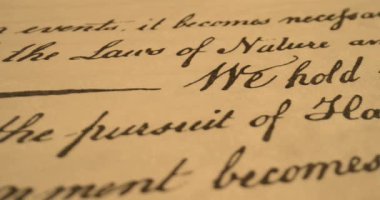 events, it becomes necessar
the Laws of Nature an
We hold
the pursuit of Ha
nment becomes